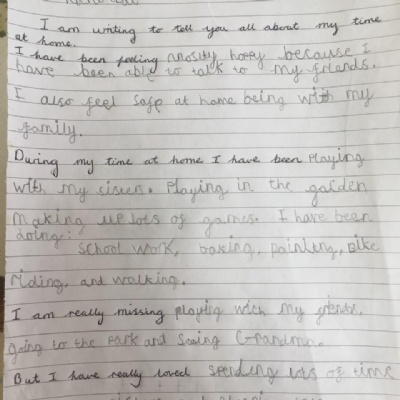 I am writing to tell you all about my time
at home.
I have been feeling mostly happy because I
have been able to talk to my friends.
I also feel safe at home being with my
family.
During my time at home I have been Playing
with my sister. Playing in the garden
Making up lots of games. I have been
doing:
School work, baking, painting, Bike
riding, and walking.
I am really missing playing with my friends.
Going to the Park and Seeing Grandma.
But I have really loved Spending lots of time